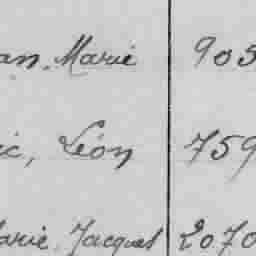 an. Marie 905
ic, Léon 759
arie. Jacques 2070